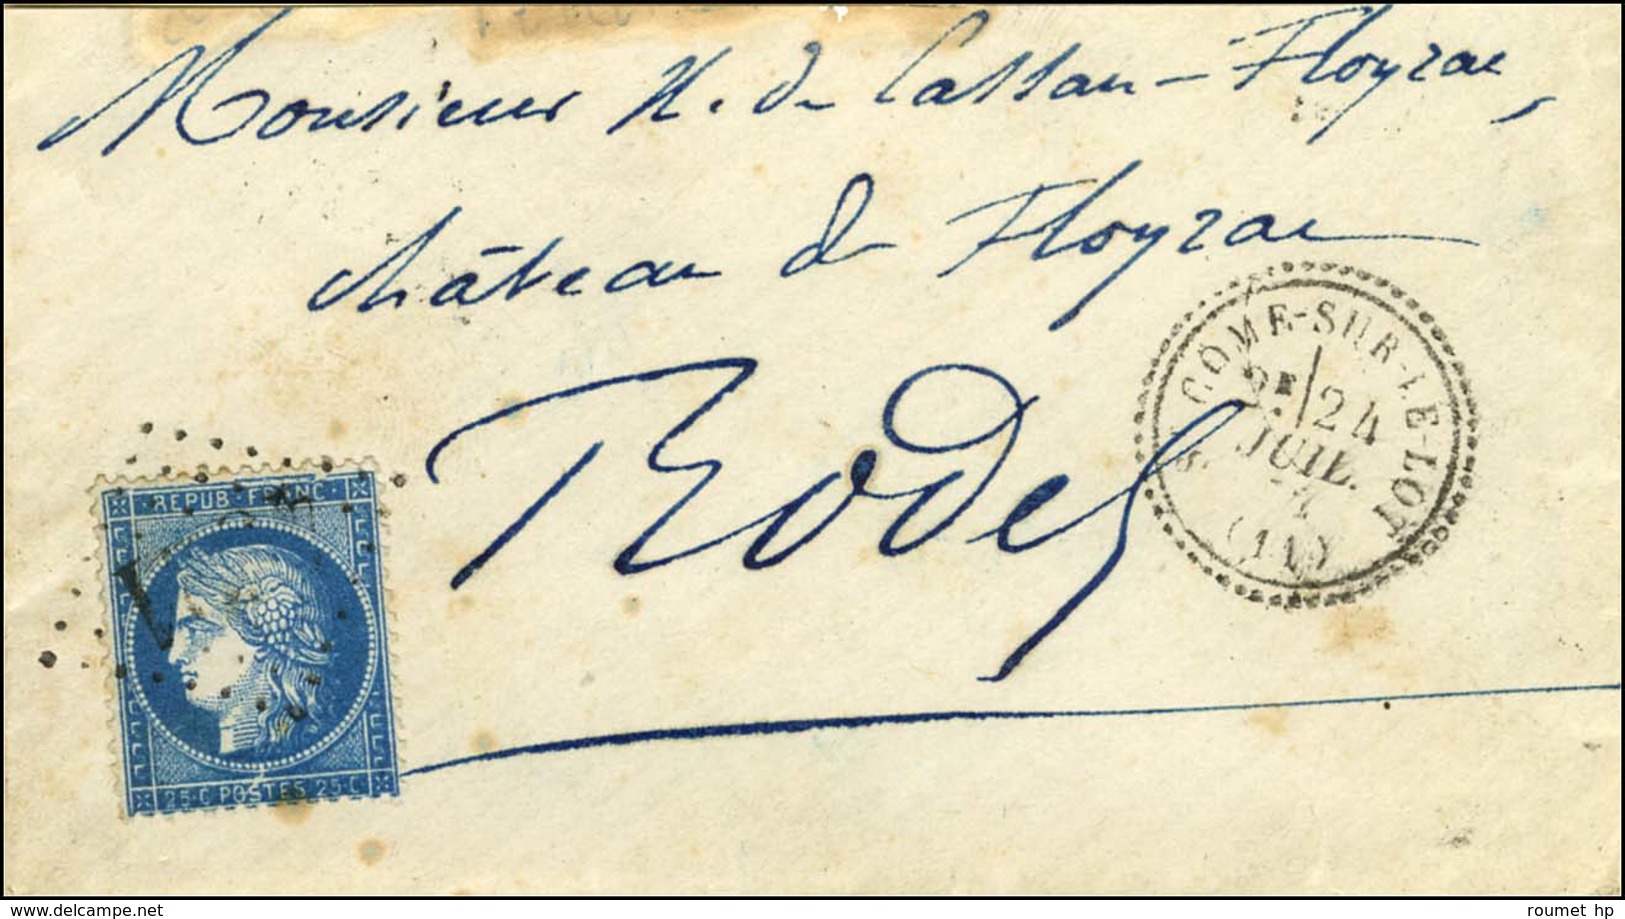 Monsieur H. de Cassan-Floyrac,
château de Floyrac
Rodez
COME-SUR-LE-LOT
2E 24
JUIL.
(11)
REPUB · FRANC ·
25·C POSTES 25·C
delcampe.net
roumet hp